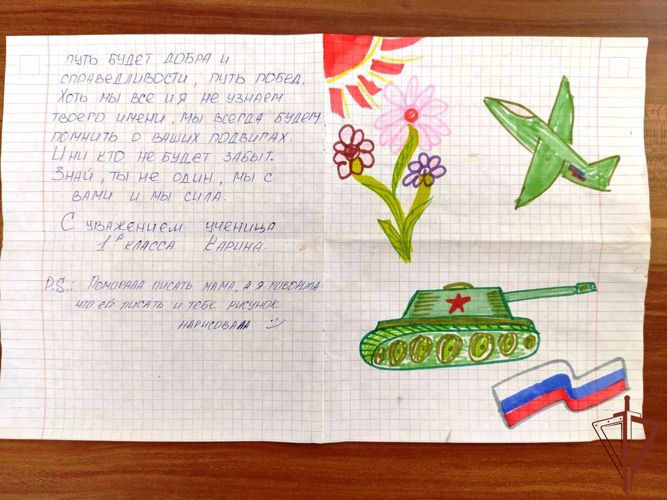 ПУТЬ БУДЕТ ДОБРА И
СПРАВЕДЛИВОСТИ, ПУТЬ ПОБЕД.
ХОТЬ МЫ ВСЕ И Я НЕ УЗНАЕМ
ТВОЕГО ИМЕНИ, МЫ ВСЕГДА БУДЕМ
ПОМНИТЬ О ВАШИХ ПОДВИГАХ.
И НИ КТО НЕ БУДЕТ ЗАБЫТ.
ЗНАЙ, ТЫ НЕ ОДИН, МЫ С
ВАМИ И МЫ СИЛА.
С УВАЖЕНИЕМ УЧЕНИЦА
1А КЛАССА КАРИНА.
P.S.: ПОМОГАЛА ПИСАТЬ МАМА, А Я ГОВОРИЛА
ЧТО ЕЙ ПИСАТЬ И ТЕБЕ РИСУНОК
НАРИСОВАЛА